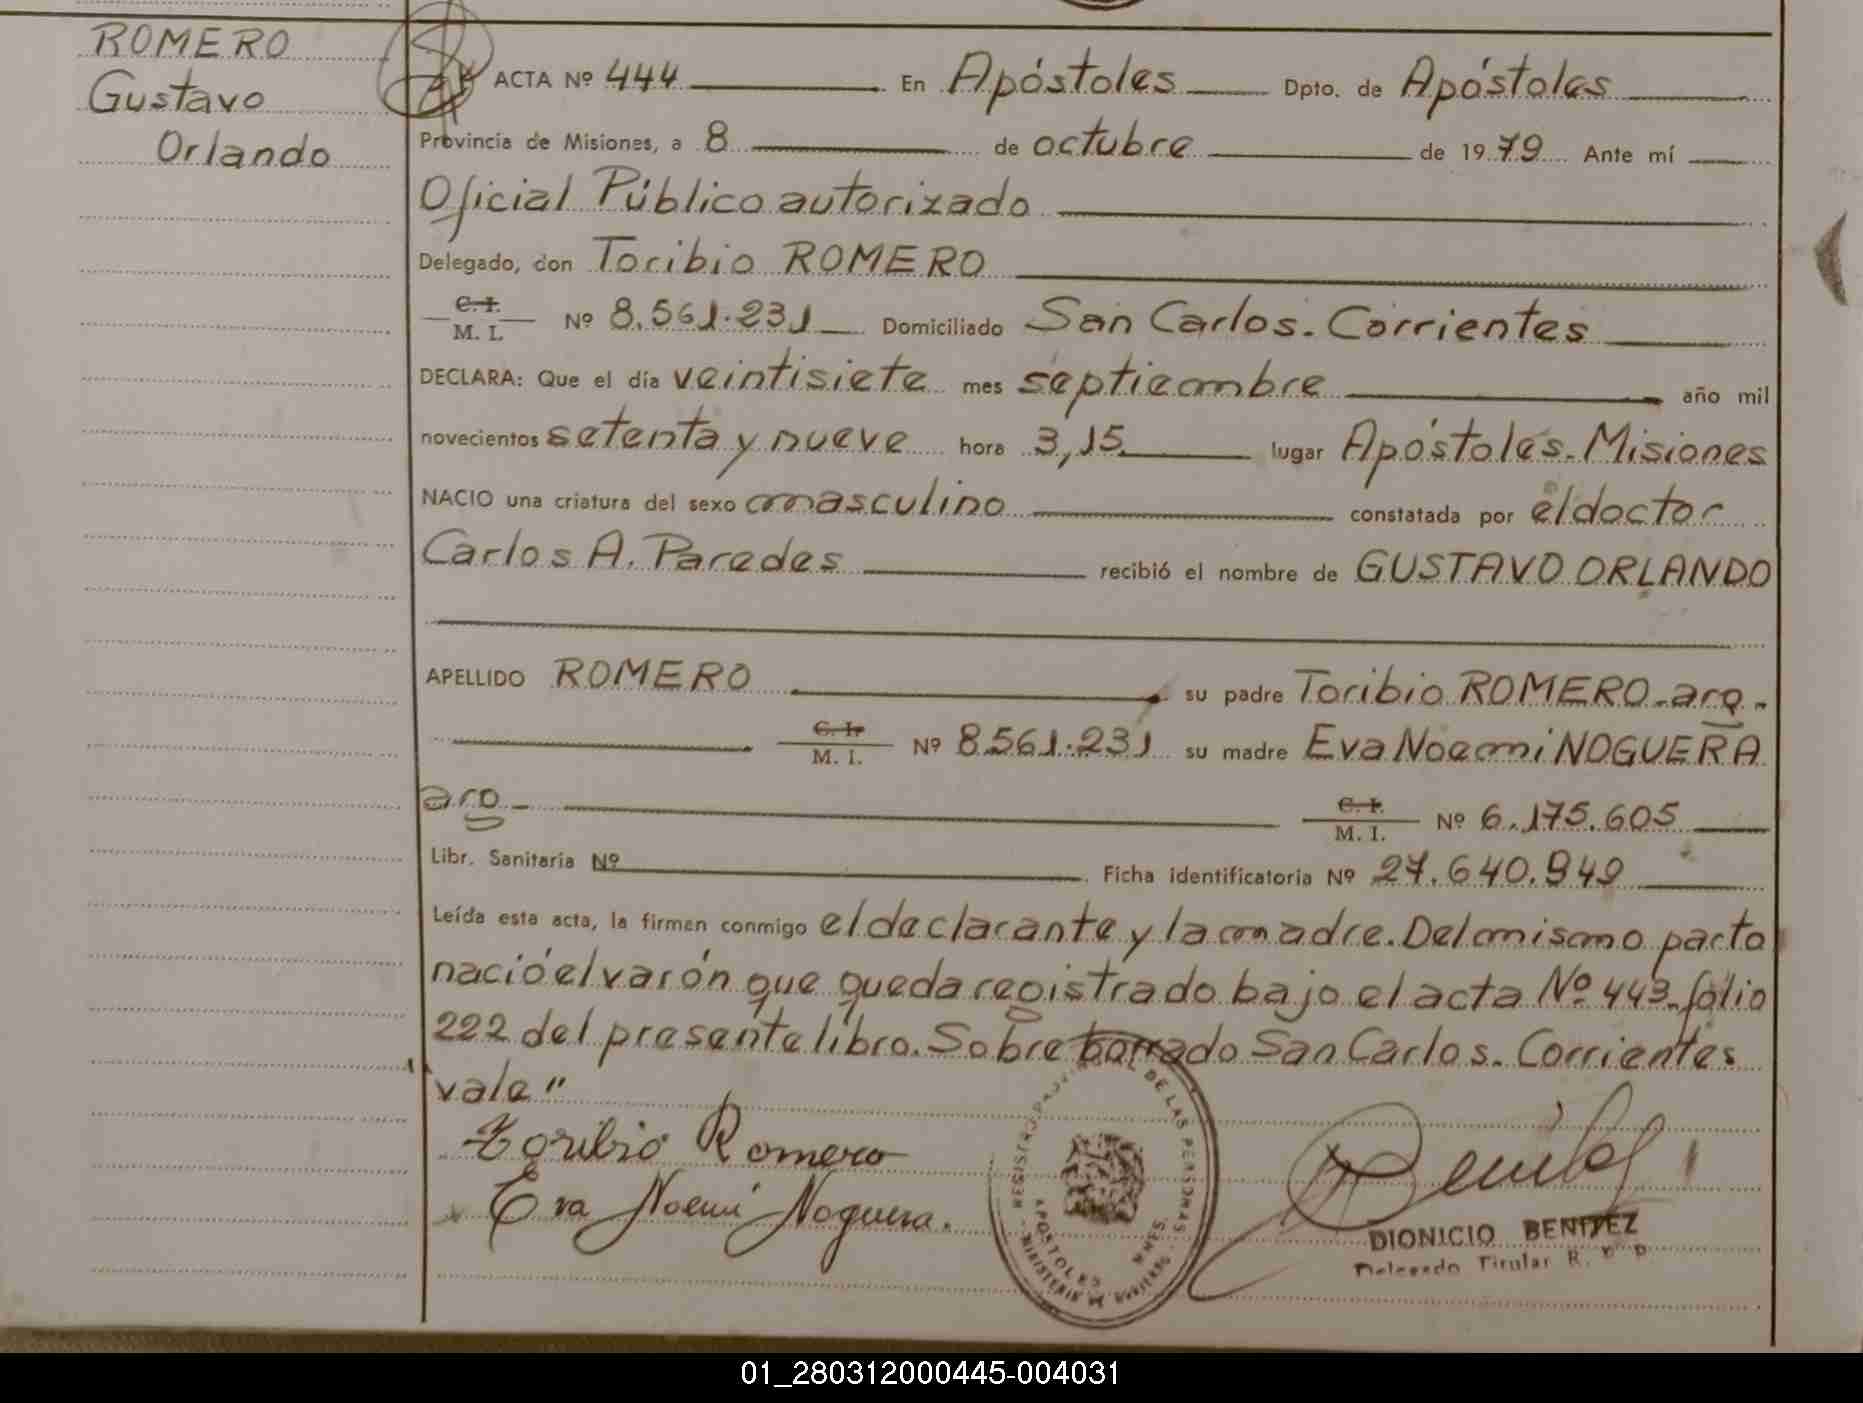 ROMERO
Gustavo
Orlando
ACTA Nº 444 En Apóstoles Dpto. de Apóstoles
Provincia de Misiones, a 8 de octubre de 1979 Ante mí
Oficial Público autorizado
Delegado, don Toribio ROMERO
C. I.
M. I. Nº 8.561.231 Domiciliado San Carlos. Corrientes
DECLARA: Que el día veintisiete mes septiembre año mil
novecientos setenta y nueve hora 3,15 lugar Apóstoles. Misiones
NACIO una criatura del sexo masculino constatada por el doctor
Carlos A. Paredes recibió el nombre de GUSTAVO ORLANDO
APELLIDO ROMERO su padre Toribio ROMERO-arg.-
C. I.
M. I. Nº 8.561.231 su madre Eva Noemi NOGUERA
arg-
C. I.
M. I. Nº 6.175.605
Libr. Sanitaria Nº Ficha identificatoria Nº 27.640.949
Leída esta acta, la firman conmigo el declarante y la madre. Del mismo parto
nació el varón que queda registrado bajo el acta Nº 443-folio
222 del presente libro. Sobre borrado San Carlos. Corrientes
vale"
Toribio Romero
Eva Noemí Noguera.
DE LAS PERSONAS
APOSTOLES MNES.
DIONICIO BENITEZ
Delegado Titular R. P. P.
01_280312000445-004031